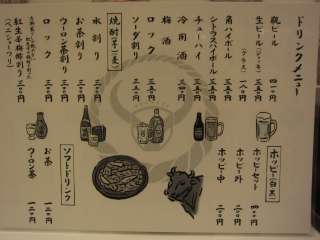 ドリンクメニュー
瓶ビール 四一〇
生ビール(ジョッキ) 三五〇
(グラス) 一八〇
角ハイボール 三五〇
シークヮサーハイボール 三五〇
チューハイ 三五〇
冷用酒 三五〇
梅酒 三五〇
ロック
ソーダ割り
焼酎(芋・麦)
水割り 三五〇
お茶割り 三五〇
ウーロン茶割り 三五〇
ロック 三五〇
紅生茶梅酢割り
(ベニショーツリ) 三五〇
ホッピー(白・黒)
ホッピーセット 四〇〇
ホッピー外 二〇〇
ホッピー中 二〇〇
ソフトドリンク
お茶 一二〇
ウーロン茶 一二〇